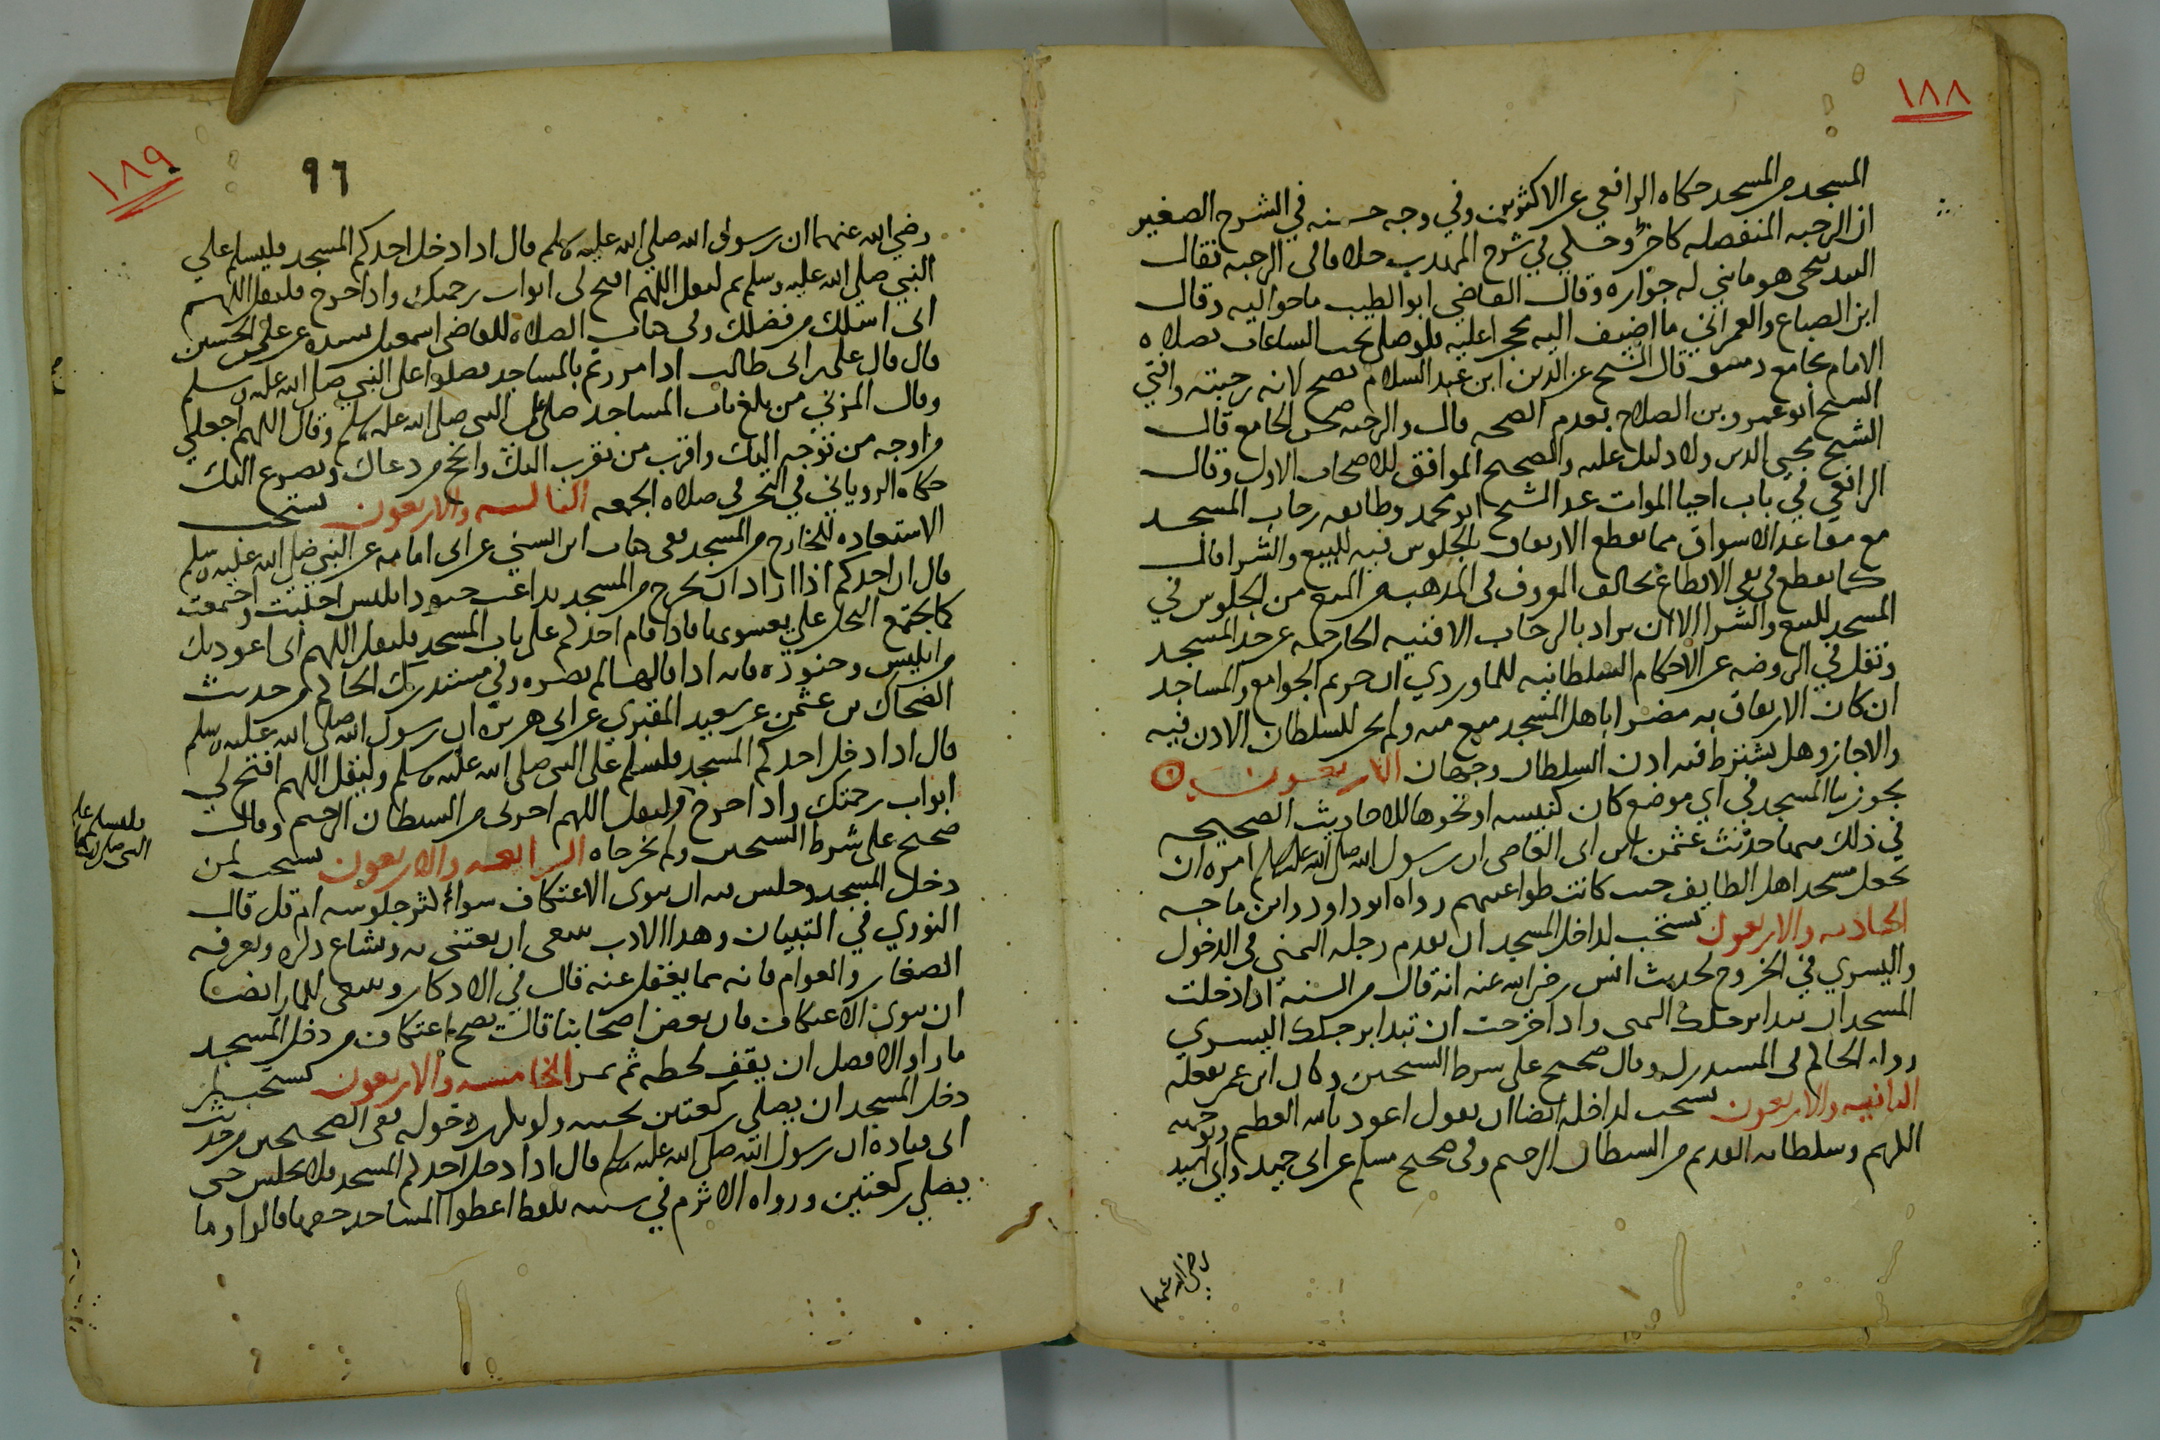 ١٨٨
المسجد من المسجد حكاه الرافعي عن الاكثرين وفي وجه حسنه في الشرح الصغير
ان الرحبه المنفصله كاخري وحكي في شرح المهذب خلافا في الرحبه فقال
البندنيجي هو ما بني له جواره وقال القاضي ابو الطيب ما حواليه وقال
ابن الصباغ والعمراني ما اضيف اليه محجرا عليه فلو صلى تحت الساعات بصلاه
الامام بجامع دمشق قال الشيخ عز الدين ابن عبد السلام تصح لانه رحبته وافتي
الشيخ ابو عمرو بن الصلاح بعدم الصحه قال والرحبه صحن الجامع قال
الشيخ محيي الدين ولا دليل عليه والصحيح الموافق للاصحاب الاول وقال
الرافعي في باب احيا الموات عد الشيخ ابو محمد وطايفه رحاب المسجد
مع مقاعد الاسواق مما يقطع الارتفاق بالجلوس فيه للبيع والشرا قال
كما يقطع في نفي الاقطاع يخالف المعروف في المذهب من المنع من الجلوس في
المسجد للبيع والشرا الا ان يراد بالرحاب الافنيه الخارجه عن حد المسجد
ونقل في الروضه عن الاحكام السلطانيه للماوردي ان حريم الجوامع والمساجد
ان كان الارتفاق به مضرا باهل المسجد منع منه ولم يجز للسلطان الاذن فيه
والا جاز وهل يشترط فيه اذن السلطان وجهان الاربعون
يجوز بنا المسجد في اي موضع كان كنيسه او نحوها للاحاديث الصحيحه
في ذلك منها حديث عثمن بن ابي العاصي ان رسول الله صلى الله عليه وسلم امره ان
يجعل مسجد اهل الطايف حيث كانت طواغيتهم رواه ابو داود وابن ماجه
الحاديه والاربعون يستحب لداخل المسجد ان يقدم رجله اليمنى في الدخول
واليسري في الخروج لحديث انس رضي الله عنه انه قال من السنه اذا دخلت
المسجد ان تبدا برجلك اليمنى واذا خرجت ان تبدا برجلك اليسري
رواه الحاكم في المستدرك وقال صحيح على شرط الشيخين وكان ابن عمر يفعله
الثانيه والاربعون يستحب لداخله ايضا ان يقول اعوذ بالله العظيم وبوجهه
الكريم وسلطانه القديم من الشيطان الرجيم وفي صحيح مسلم عن ابي حميد وابي اسيد
رضي الله عنهما
١٨٩
٩٦
رضي الله عنهما ان رسول الله صلى الله عليه وسلم قال اذا دخل احدكم المسجد فليسلم على
النبي صلى الله عليه وسلم ثم ليقل اللهم افتح لي ابواب رحمتك واذا خرج فليقل اللهم
اني اسلك من فضلك وفي كتاب الصلاه للقاضي اسمعيل بسنده عن علي بن الحسين
قال قال علي بن ابي طالب اذا مررتم بالمساجد فصلوا على النبي صلى الله عليه وسلم
وقال المزني من بلغ باب المساجد صلى على النبي صلى الله عليه وسلم وقال اللهم اجعلني
من اوجه من توجه اليك واقرب من تقرب اليك وانجح من دعاك وتضرع اليك
حكاه الروياني في البحر في صلاه الجمعه الثالثه والاربعون يستحب
الاستعاذه للخارج من المسجد ففي كتاب ابن السني عن ابي امامه عن النبي صلى الله عليه وسلم
قال ان احدكم اذا اراد ان يخرج من المسجد تداعت جنود ابليس اجلبت واجتمعت
كما يجتمع النحل على يعسوبها فاذا قام احدكم على باب المسجد فليقل اللهم اني اعوذ بك
من ابليس وجنوده فانه اذا قالها لم يضره وفي مستدرك الحاكم من حديث
الضحاك بن عثمن عن سعيد المقبري عن ابي هريره ان رسول الله صلى الله عليه وسلم
قال اذا دخل احدكم المسجد فليسلم على النبي صلى الله عليه وسلم وليقل اللهم افتح لي
ابواب رحمتك واذا خرج فليقل اللهم اجرني من الشيطان الرجيم وقال
فليسلم على
النبي صلى الله
صحيح على شرط الشيخين ولم يخرجاه الرابعه والاربعون يستحب لمن
دخل المسجد وجلس فيه ان ينوي الاعتكاف سواء كثر جلوسه ام قل قال
النووي في التبيان وهذا الادب ينبغي ان يعتنى به ويشاع ذكره ويعرفه
الصغار والعوام فانه مما يغفل عنه قال في الاذكار وينبغي للمار ايضا
ان ينوي الاعتكاف فان بعض اصحابنا قال يصح اعتكاف من دخل المسجد
مارا والافضل ان يقف لحظه ثم يمر الخامسه والاربعون يستحب لمن
دخل المسجد ان يصلي ركعتين تحيه ولو تكرر دخوله ففي الصحيحين من حديث
ابي قتاده ان رسول الله صلى الله عليه وسلم قال اذا دخل احدكم المسجد فلا يجلس حتى
يصلي ركعتين ورواه الاثرم في سننه بلفظ اعطوا المساجد حقها قالوا وما